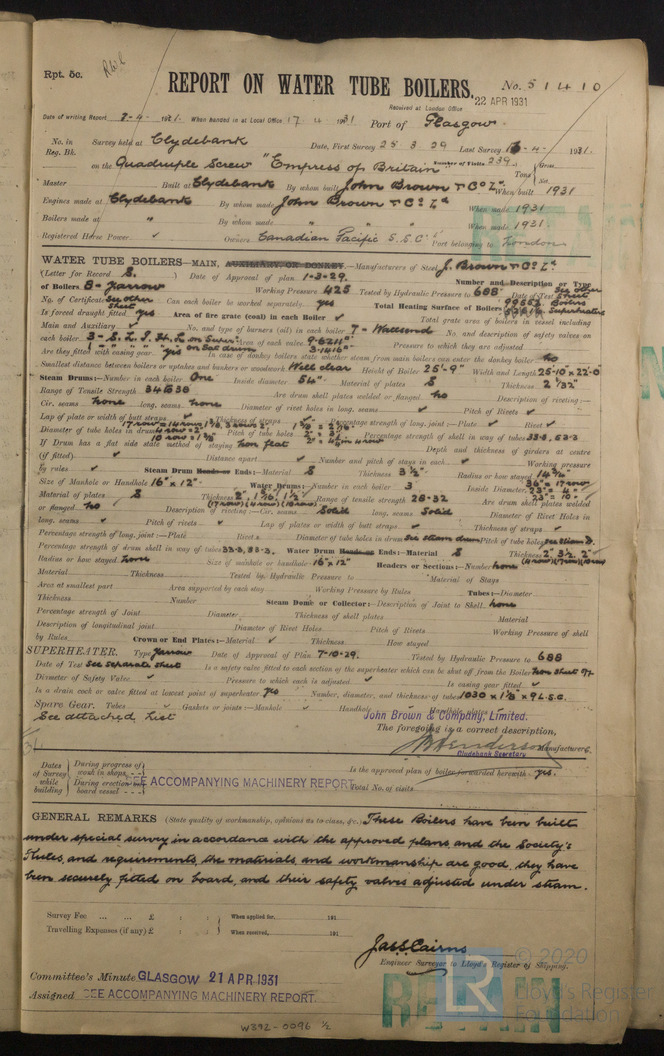 Rpt. 5c.
REPORT ON WATER TUBE BOILERS.
No. 51410
Received at London Office
22 APR 1931
Date of writing Report 9-4-1931. When handed in at Local Office 17.4.1931 Port of Glasgow
No. in Survey held at Clydebank Date, First Survey 25.3.29 Last Survey -4-1931.
Reg. Bk. Number of Visits 239
on the Quadruple Screw "Empress of Britain" Tons Gross Net
Master Built at Clydebank By whom built John Brown & Co Ld When built 1931
Engines made at Clydebank By whom made John Brown & Co Ld When made 1931
Boilers made at " By whom made " " When made 1931
Registered Horse Power ✓ Owners Canadian Pacific S.S. Co Port belonging to London
WATER TUBE BOILERS—MAIN, AUXILIARY, OR DONKEY.—Manufacturers of Steel J. Brown & Co Ld
(Letter for Record S.) Date of Approval of plan 1-3-29. Number and Description or Type
of Boilers 8-Yarrow Working Pressure 425 Tested by Hydraulic Pressure to 688 Date of Test See other sheet
No. of Certificate See other sheet Can each boiler be worked separately yes Total Heating Surface of Boilers
Is forced draught fitted yes Area of fire grate (coal) in each Boiler ✓ Total grate area of boilers in vessel including
Main and Auxiliary ✓ No. and type of burners (oil) in each boiler 7-Wallsend No. and description of safety valves on
each boiler Area of each valve Pressure to which they are adjusted
Are they fitted with easing gear yes In case of donkey boilers state whether steam from main boilers can enter the donkey boiler no
Smallest distance between boilers or uptakes and bunkers or woodwork Well clear Height of Boiler 25'-9" Width and Length 25-10 x 22-0
Steam Drums:—Number in each boiler One Inside diameter 54" Material of plates S Thickness 2 1/32"
Range of Tensile Strength 34 to 38 Are drum shell plates welded or flanged no Description of riveting:—
Cir. seams none long. seams none Diameter of rivet holes in long. seams ✓ Pitch of Rivets ✓
Lap of plate or width of butt straps ✓ Thickness of straps Percentage strength of long. joint:—Plate ✓ Rivet ✓
Diameter of tube holes in drum Pitch of tube holes Percentage strength of shell in way of tubes 33.3, 53.3
If Drum has a flat side state method of staying non flat Depth and thickness of girders at centre
(if fitted) ✓ Distance apart ✓ Number and pitch of stays in each ✓ Working pressure
by rules ✓ Steam Drum Heads or Ends:—Material S Thickness 3 1/2" Radius or how stayed
Size of Manhole or Handhole 16" x 12" Water Drums:—Number in each boiler 3 Inside Diameter
Material of plates S Thickness Range of tensile strength 28-32 Are drum shell plates welded
or flanged no Description of riveting:—Cir. seams Solid long. seams Solid Diameter of Rivet Holes in
long. seams ✓ Pitch of rivets ✓ Lap of plates or width of butt straps ✓ Thickness of straps ✓
Percentage strength of long. joint:—Plate Rivet Diameter of tube holes in drum See steam drum Pitch of tube holes see steam D.
Percentage strength of drum shell in way of tubes 33.3, 53.3. Water Drum Heads or Ends:—Material S Thickness
Radius or how stayed Size of manhole or handhole 16" x 12" Headers or Sections:—Number none
Material Thickness Tested by Hydraulic Pressure to Material of Stays
Area at smallest part Area supported by each stay Working Pressure by Rules Tubes:—Diameter
Thickness Number Steam Dome or Collector:—Description of Joint to Shell none
Percentage strength of Joint Diameter Thickness of shell plates Material
Description of longitudinal joint Diameter of Rivet Holes Pitch of Rivets Working Pressure of shell
by Rules Crown or End Plates:—Material ✓ Thickness How stayed
SUPERHEATER. Type Yarrow Date of Approval of Plan 7-10-29. Tested by Hydraulic Pressure to 688
Date of Test See separate sheet Is a safety valve fitted to each section of the superheater which can be shut off from the Boiler
Diameter of Safety Valve ✓ Pressure to which each is adjusted ✓ Is easing gear fitted ✓
Is a drain cock or valve fitted at lowest point of superheater yes Number, diameter, and thickness of tubes 1030 x 1 1/8 x 9 L.S.G.
Spare Gear. Tubes ✓ Gaskets or joints:—Manhole ✓ Handhole Handhole plates
See attached List
John Brown & Company, Limited.
The foregoing is a correct description,
J Henderson Manufacturer.
Clydebank Secretary
Dates of Survey while building
During progress of work in shops
During erection on board vessel
SEE ACCOMPANYING MACHINERY REPORT
Is the approved plan of boiler forwarded herewith yes.
Total No. of visits
GENERAL REMARKS (State quality of workmanship, opinions as to class, &c.) These Boilers have been built
under special survey in accordance with the approved plans and the Society's
Rules, and requirements, the materials and workmanship are good, they have
been securely fitted on board, and their safety valves adjusted under steam.
Survey Fee ... ... £ : : When applied for, 191
Travelling Expenses (if any) £ : : When received, 191
Jas S Cairns
Engineer Surveyor to Lloyd's Register of Shipping.
Committee's Minute GLASGOW 21 APR 1931
Assigned SEE ACCOMPANYING MACHINERY REPORT.
RETAIN
© 2020
LR Lloyd's Register
Foundation
W392-0096 1/2